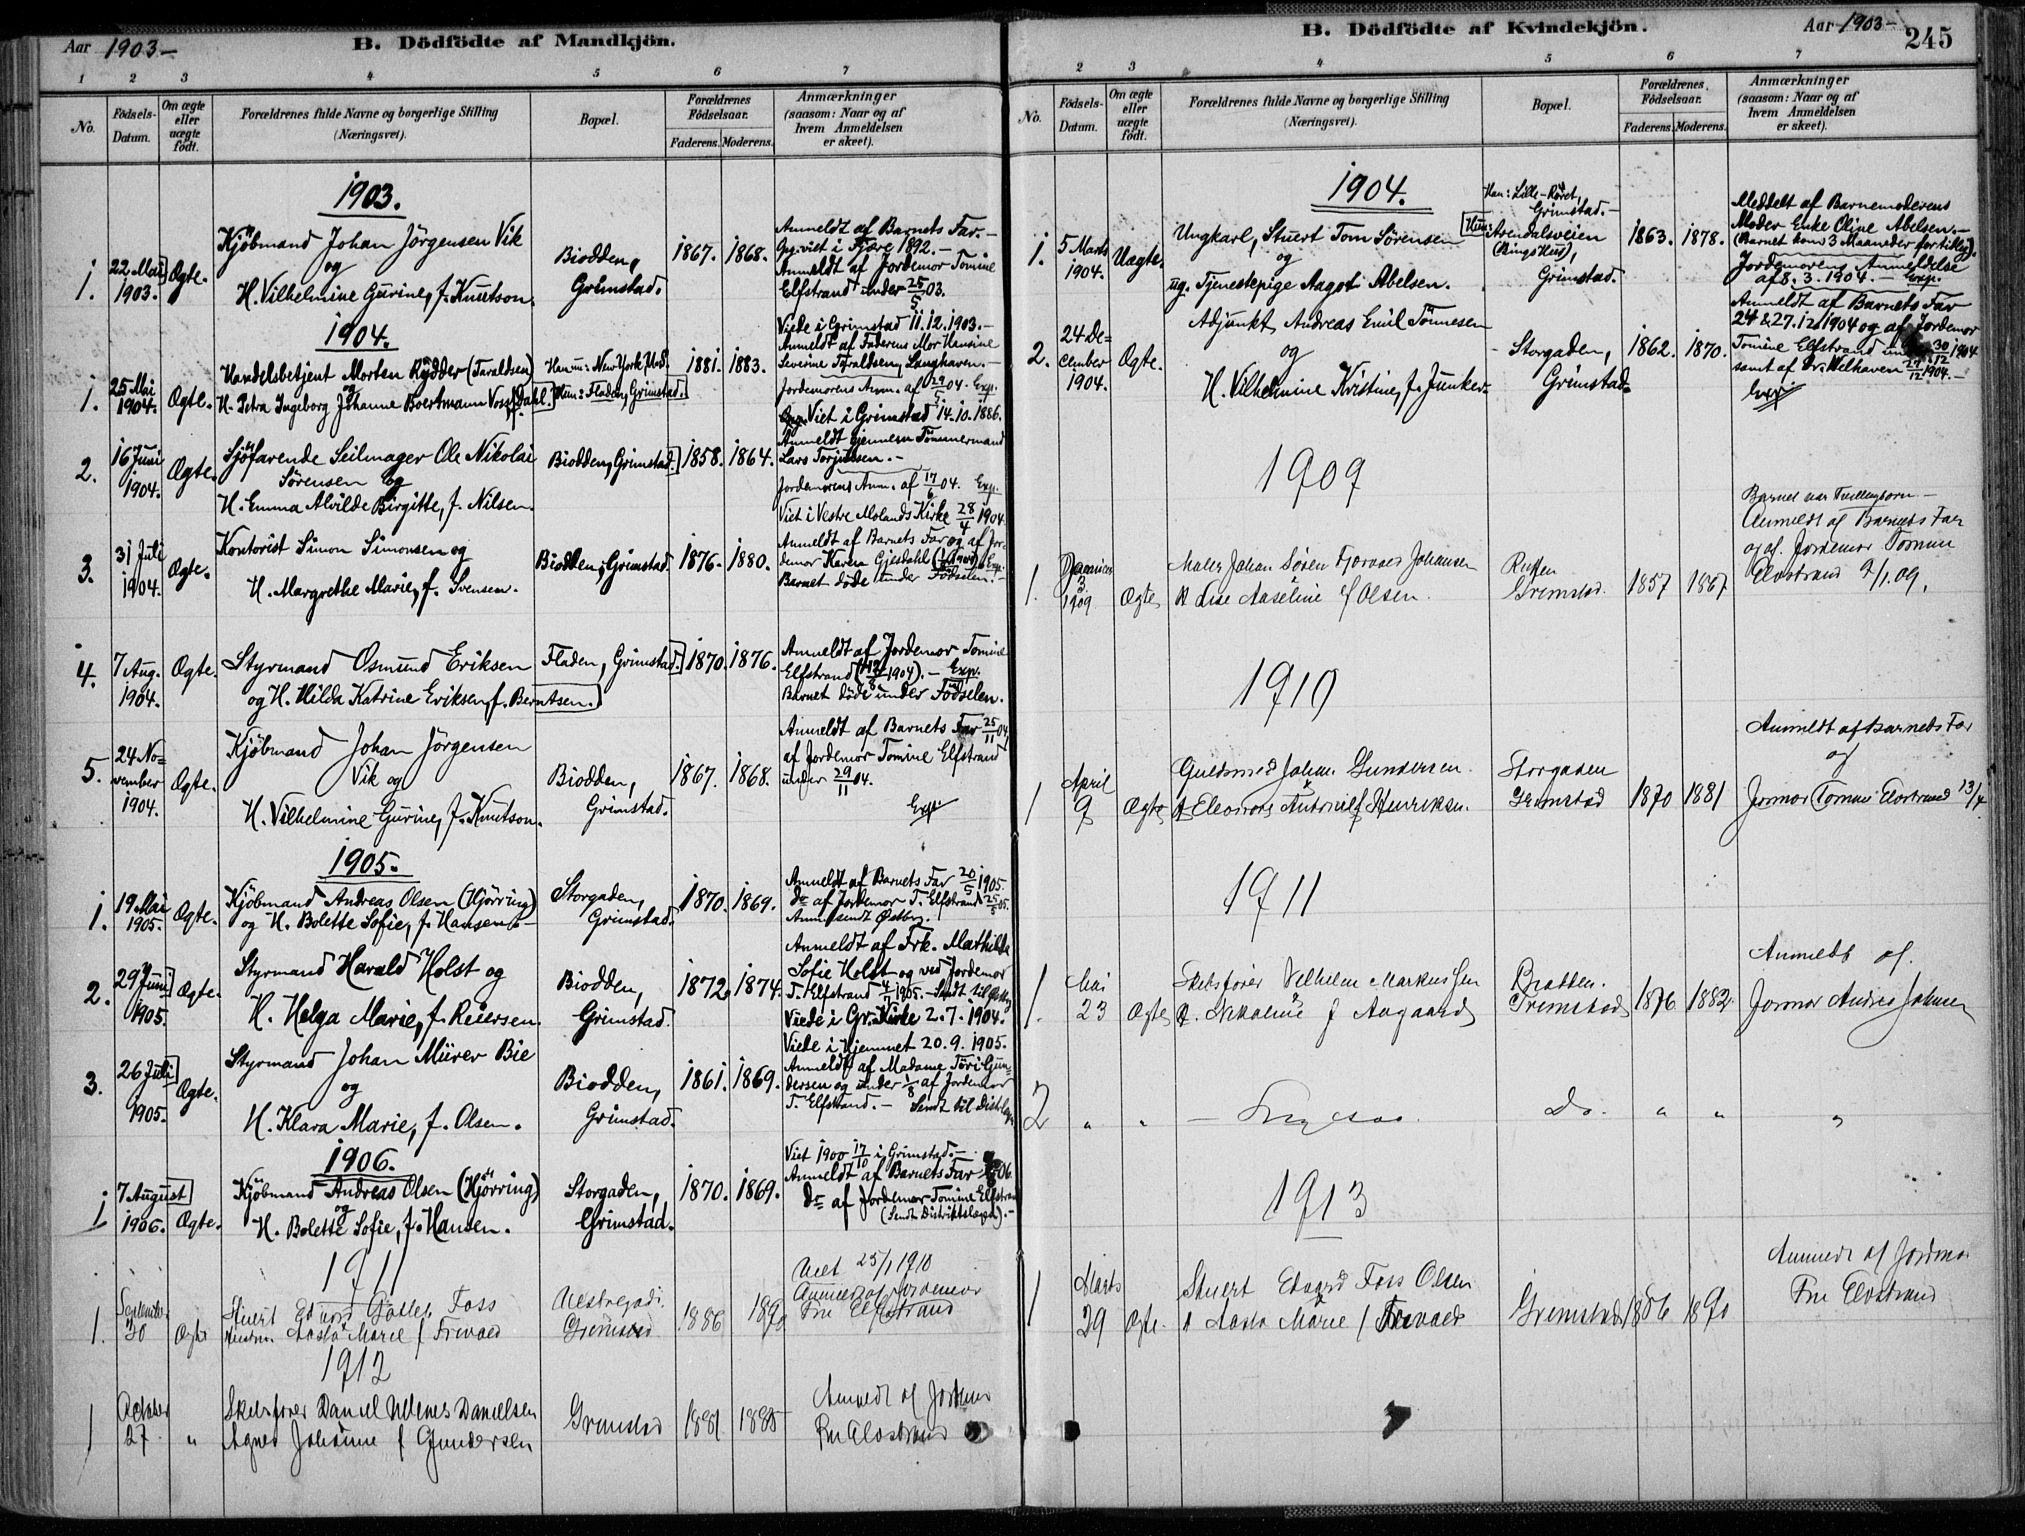 Aar 1903-
B. Dödfödte af Mandkjön.
1 2 3 4 5 6 7
No.
Födsels-Datum.
Om ægte eller uægte födt.
Forældrenes fulde Navne og borgerlige Stilling
(Næringsvei).
Bopæl.
Forældrenes Födselsaar.
Faderens. Moderens.
Anmærkninger
(saasom: Naar og af
hvem Anmeldelsen
er skeet).
1903.
1. 22 Mai 1903. Ægte.
Kjöbmand Johan Jörgensen Vik
og
H. Vilhelmine Gurine, f. Knutson.
Biodden,
Grimstad.
1867. 1868.
Anmeldt af Barnets Far.-
Gpr. viet i Fjære 1892.-
Anmeldt af Jordemor Tomine
Elfstrand under 25/5 03.
1904.
1. 25 Mai 1904. Ægte.
Handelsbetjent Morten Rydder (Taraldsen)
og
H. Petra Ingeborg Johanne Boertmann Voss f. Dahl.
Han in: New York, U.S.
Hun: Fladen, Grimstad.
1881. 1883.
Viede i Grimstad 11.12.1903.-
Anmeldt af Faderens Mor Hansine
Severine Taraldsen, Langhaven.-
Jordemorens Anm. af 29/5 04. Exp.
2. 16 Juni 1904. Ægte.
Sjöfarende Seilmager Ole Nikolai
Sörensen og
H. Emma Alvilde Birgitte, f. Nilsen.
Biodden, Grimstad.
1858. 1864.
Viet i Grimstad 14.10.1886.
Anmeldt gjennem Tömmermand
Lars Torjussen.-
Jordemorens Anm. af 17/6 04. Exp.
3. 31 Juli 1904. Ægte.
Kontorist Simon Simonsen og
H. Margrethe Marie, f. Svensen.
Biodden, Grimstad.
1876. 1880.
Viet i Vestre Molands Kirke 28/4 1904.
Anmeldt af Barnets Far og af Jor-
demor Karen Gjesdahl
Barnet döde under Födselen.
4. 7 Aug. 1904. Ægte.
Styrmand Osmund Eriksen
og H. Hilda Katrine Eriksen, f. Berntsen.
Fladen, Grimstad.
1870. 1876.
Anmeldt af Jordemor Tomine
Elfstrand (12/8 1904).- Exp.
Barnet döde under Födselen.
5. 24 November 1904. Ægte.
Kjöbmand Johan Jörgensen
Vik og
H. Vilhelmine Gurine, f. Knutson.
Biodden,
Grimstad.
1867. 1868.
Anmeldt af Barnets Far 25/11 04,
af Jordemor Tomine Elfstrand
under 29/11 04.
Exp.
1905.
1. 19 Mai 1905. Ægte.
Kjöbmand Andreas Olsen (Hjörring)
og H. Bolette Sofie, f. Hansen.-
Storgaden,
Grimstad.
1870. 1869.
Anmeldt af Barnets Far 20/5 1905.
do af Jordemor T. Elfstrand 25/5 05.
2. 29 Juni 1905. Ægte.
Styrmand Harald Holst og
H. Helga Marie, f. Reiersen.
Biodden,
Grimstad.
1872. 1874.
Anmeldt af Frk. Mathilda
Sofie Holst og ved Jordemor
T. Elfstrand 4/7 1905.-
Viede i Gr. Kirke 2.7.1904.
3. 26 Juli 1905. Ægte.
Styrmand Johan Mürer Bie
og
H. Klara Marie, f. Olsen.
Biodden,
Grimstad.
1861. 1869.
Viede i Hjemmet 20.9.1905.
Anmeldt af Madame Töri Gun-
dersen og under 1/8 af Jordemor
T. Elfstrand.- Sendt til Distrlægen
1906.
1 7 August 1906. Ægte.
Kjöbmand Andreas Olsen (Hjörring)
og
H. Bolette Sofie, f. Hansen.
Storgaden,
Grimstad.
1870. 1869.
Viet 1900 17/10 i Grimstad.-
Anmeldt af Barnets Far 06
do af Jordemor Tomine Elfstrand
(Sendt Distriktslægen).-
1911
1. September 30 Ægte
Stuert Edvard Foss
Hustru Aasta Marie f Frivold
Vestregad.
Grimstad
1886 1890
Viet 25/1 1910
Anmeldt af Jordemor
Fru Elfstrand
1912
1 October 27 "
Skibsförer Daniel Danielsen
Agnes Johanne f Gundersen
Grimstad
1881 1885
Anmeldt af Jordmor
Fru Elvstrand
B. Dödfödte af Kvindekjön.
Aar 1903- 245
2 3 4 5 6 7
No.
Födsels-Datum.
Om ægte eller uægte födt.
Forældrenes fulde Navne og borgerlige Stilling
(Næringsvei).
Bopæl.
Forældrenes Födselsaar.
Faderens. Moderens.
Anmærkninger
(saasom: Naar og af
hvem Anmeldelsen
er skeet).
1904.
1. 5 Marts 1904. Uægte.
Ungkarl, Stuert Tom Sörensen
og
ug. Tjenestepige Aagot Abelsen.
Han: Lille-Röret,
Grimstad.-
Hun: Arendalsveien
(Ringshus),
Grimstad.
1863. 1878.
Meddelt af Barnemoderens
Moder Enke Oline Abelsen.-
(Barnet kom 3 Maaneder for tidlig).
Jordemorens Anmeldelse
af 8.3.1904.- Exp.
2. 24 December 1904. Ægte.
Adjunkt Andreas Emil Tönnesen
og
H. Vilhelmine Kristine, f. Junker.
Storgaden,
Grimstad.
1862. 1870.
Anmeldt af Barnets Far
24 & 27.12.1904 og af Jordemor
Tomine Elfstrand under 30/12 1904
samt af Dr. Welhaven 27/12 1904.-
Exp.
1909
1. Januar 3 1909 Ægte
Maler Johan Sören Johansen
H Lise Aaseline f Olsen.
Grimstad.
1857 1867
Barnet var Tvillingbarn-
Anmeldt af Barnets Far
og af Jordemor Tomine
Elvstrand 9/1.09.
1910
1 April 9 Ægte
Guldsmed Johan Gundersen
H Eleonora f Henriksen.
Storgaden
Grimstad
1870 1881
Anmeldt af Barnets Far
og
Jormor Tomine Elvstrand 13/4
1911
1. Mai 23 Ægte
Skibsförer Vilhelm Markussen
H. Nikoline f Aagaard
Grimstad
1876 1882
Anmeldt af
Jormor Andrea Johnsen
2 " " - - Do. " " "
1913
1 Marts 29 Ægte.
Stuert Edvard Foss Olsen
H Aasta Marie f Frivold
Grimstad
1886 1890
Anmeldt af Jordmor
Fru Elvstrand